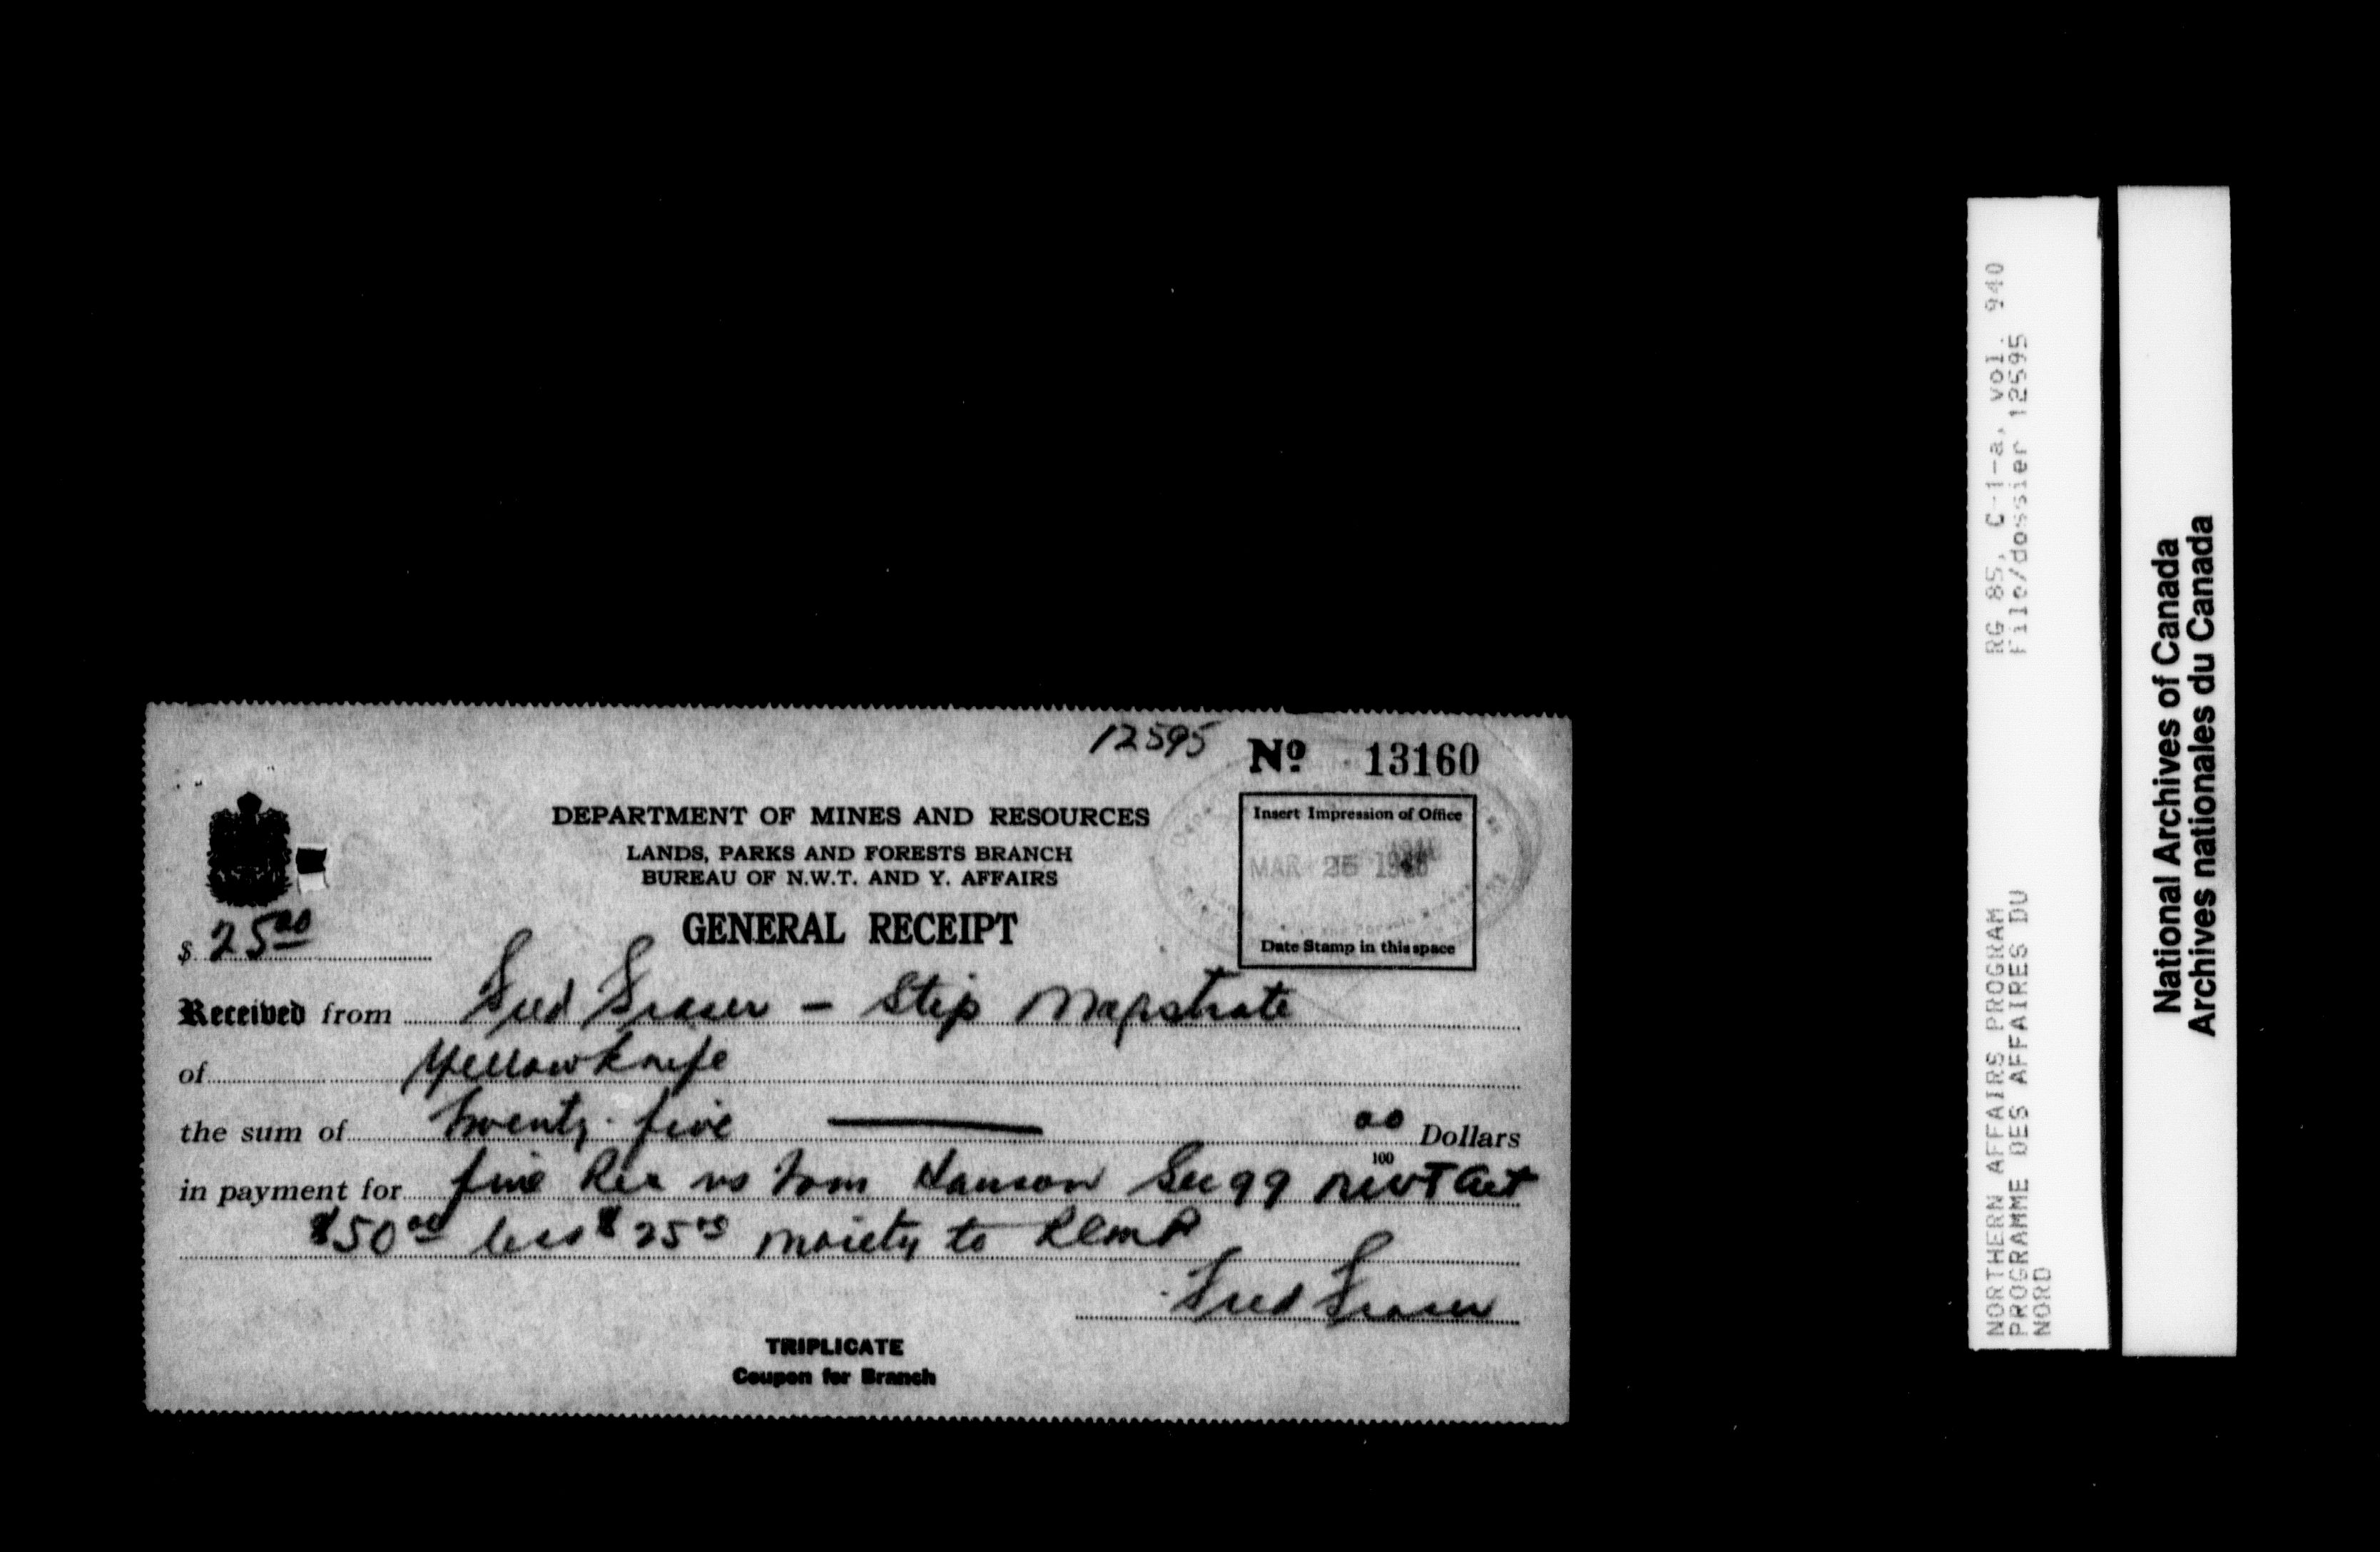 12595
No 13160
DEPARTMENT OF MINES AND RESOURCES
LANDS, PARKS AND FORESTS BRANCH
BUREAU OF N.W.T. AND Y. AFFAIRS
GENERAL RECEIPT
Insert Impression of Office
MAR 26
Date Stamp in this space
$ 25.00
Received from Fred Fraser - Stip Magistrate
of Yellowknife
the sum of Twenty-five 00/100 Dollars
in payment for fine Rex vs Tom Hanson Sec 99 NWT Act
$50.00 less $25.00 moiety to RCMP
Fred Fraser
TRIPLICATE
Coupon for Branch
NORTHERN AFFAIRS PROGRAM RG 85, C-1-a, vol. 940
PROGRAMME DES AFFAIRES DU File/dossier 12595
NORD
National Archives of Canada
Archives nationales du Canada